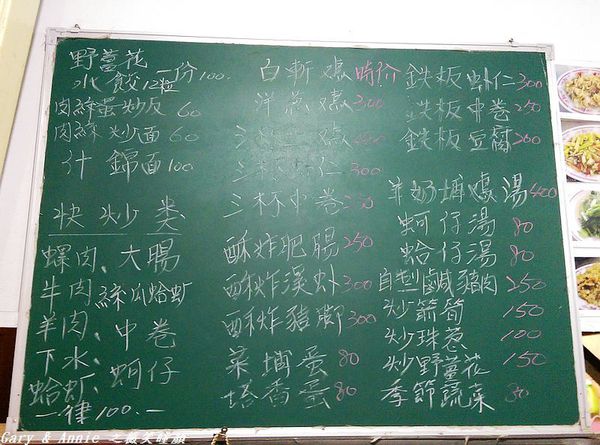 野薑花
水餃12粒 一份100.
肉絲蛋炒反 60
肉絲炒面 60
什錦面100
快炒类
螺肉、大腸
牛肉、絲瓜蛤虭
羊肉、中卷
下水、蚵仔
蛤虭、
一律100.一
白斬雞 時价
洋蔥雞 300
三杯
三杯 300
三杯中卷
酥炸肥腸 250
酥炸溪虾 300
酥炸豬腳 300
菜埔蛋 80
塔香蛋 80
鉄板虾仁 300
鉄板中卷 250
鉄板豆腐 200
羊奶埔雞湯 400
蚵仔湯 80
蛤仔湯 80
自型鹹豬肉 250
炒箭筍 150
炒珠蔥 100
炒野薑花 150
季節蔬菜 80
Gary & Annie